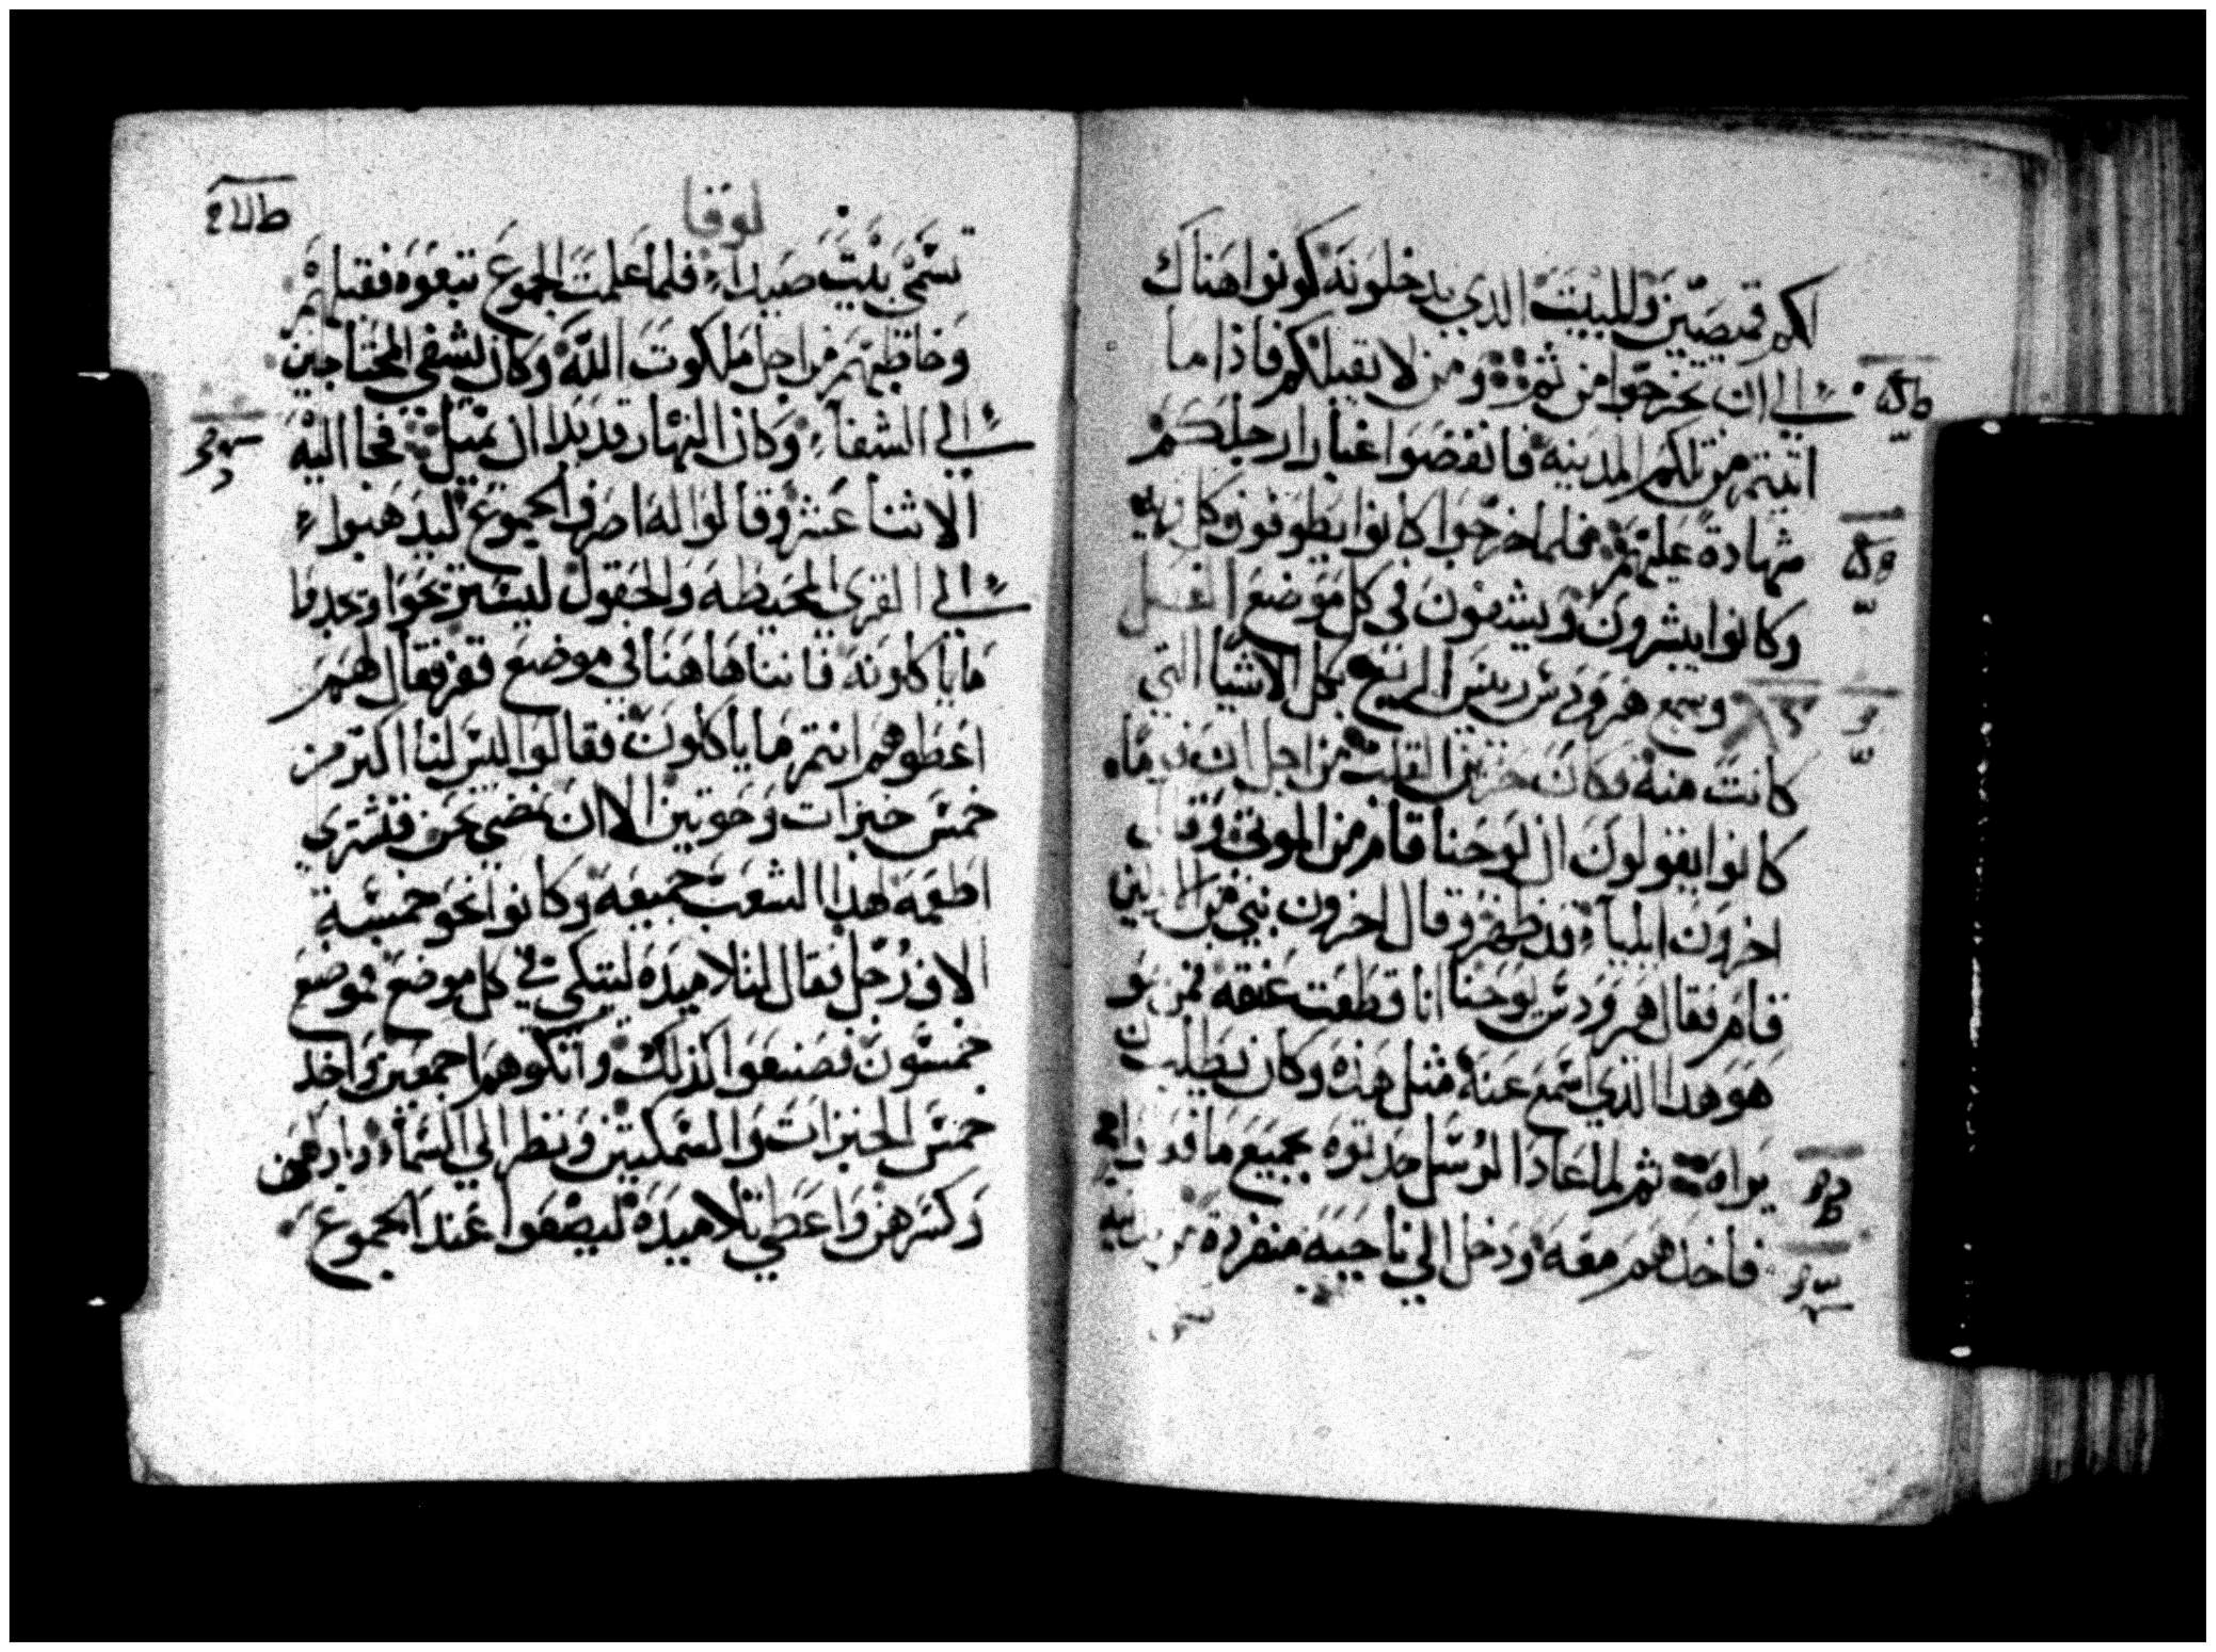 لكم قميصين وللبيت الذي يدخلونه كونوا هناك
الي ان تخرجوا من ثم ومن لا يقبلكم فاذا ما
اتيتم من تلكم المدينه فانفضوا غبار ارجلكم
شهادة عليهم فلما خرجوا كانوا يطوفون كل قريه
وكانوا يبشرون ويشفون في كل موضع
وسمع هرودس ريس الربع بكل الاشيا التي
كانت منه وكان حزين القلب من اجل ان
كانوا يقولون ان يوحنا قام من الموتي وقال
اخرون ايلياء قد ظهر وقال اخرون نبي من الاولين
قام فقال هرودس يوحنا انا قطعت عنقه فمن
هو هدا الذي اسمع عنه مثل هذه وكان يطلب ان
يراه ثم لما عاد الرسل حدثوه بجميع ما
فاخذهم معه ودخل الي ناحيه منفردة
لوقا
تسمي بيت صيداء فلما علمت الجموع تبعوه فقبلهم
وخاطبهم من اجل ملكوت الله وكان يشفي المحتاجين
الي الشفاء وكان النهار قد بدا ان يميل فجا اليه
الاثنا عشر وقالوا له اصرف الجموع ليدهبوا
الي القري المحيطه والحقول ليستريحوا ويجدوا
ما ياكلونه فاننا هاهنا في موضع قفر فقال لهم
اعطوهم انتم ما ياكلون فقالوا ليس لنا اكتر من
خمس خبزات وحوتين الا ان نمضي نحن فنشتري
اطعمه لهدا الشعب جميعه وكانوا نحو خمسة
الاف رجل فقال لتلاميده ليتكي في كل موضع موضع
خمسون فصنعوا كذلك واتكوهم اجمعين واخد
خمس الخبزات والسمكتين ونظر الي السماء وباركهن
وكسرهن واعطي تلاميده ليضعوا عند الجموع